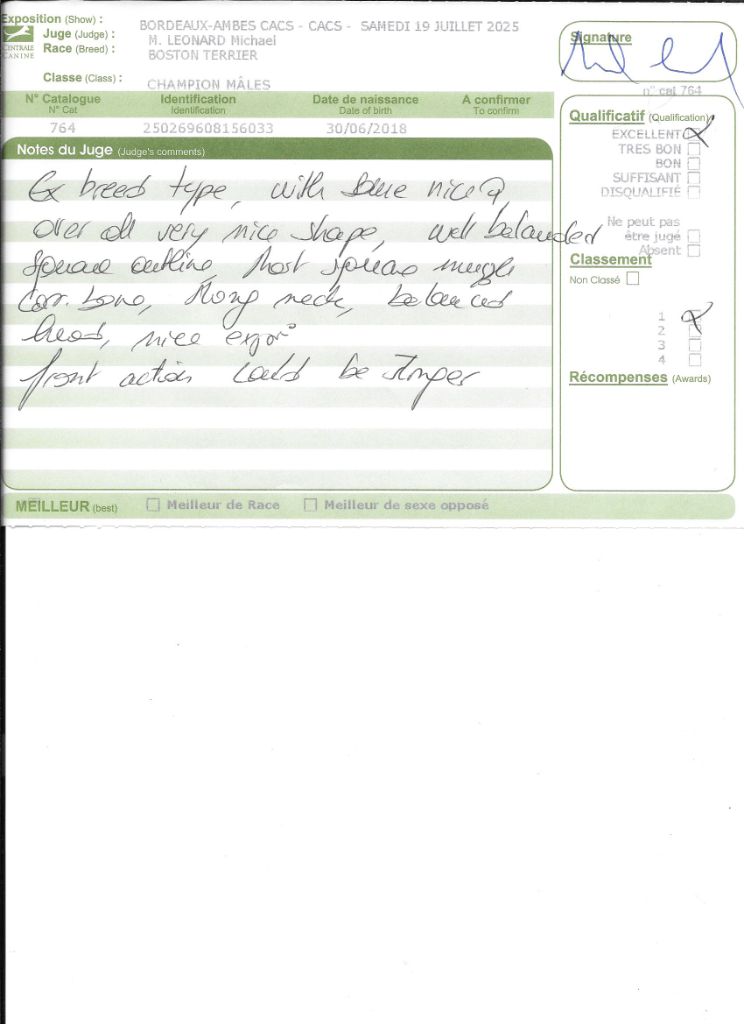 Exposition (Show) : BORDEAUX-AMBES CACS - CACS - SAMEDI 19 JUILLET 2025
Juge (Judge) : M. LEONARD Michael
Race (Breed) : BOSTON TERRIER
CENTRALE CANINE
Classe (Class) : CHAMPION MÂLES
Signature
n° cat 764
N° Catalogue Identification Date de naissance A confirmer
N° Cat Identification Date of birth To confirm
764 250269608156033 30/06/2018
Notes du Juge (Judge's comments)
Ex breed type, with some nice
over all very nice shape, well balanded
square outline, short square muzzle
Corr. bone, strong neck, balanced
head, nice expr°
front action could be stronger
Qualificatif (Qualification)
EXCELLENT
TRES BON
BON
SUFFISANT
DISQUALIFIÉ
Ne peut pas
être jugé
Absent
Classement
Non Classé
1
2
3
4
Récompenses (Awards)
MEILLEUR (best) Meilleur de Race Meilleur de sexe opposé